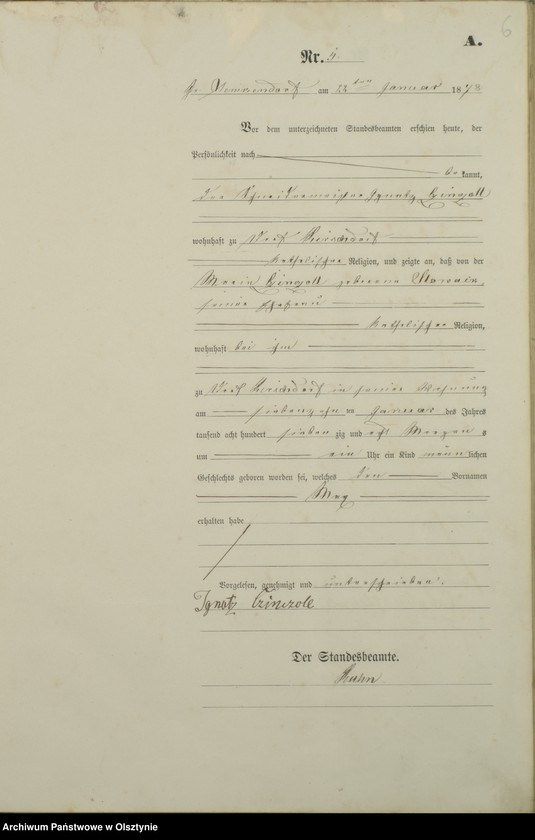 6
A.
Nr. 4.
am 22 ten Januar 1878
Vor dem unterzeichneten Standesbeamten erschien heute, der
Persönlichkeit nach
be kannt,
der Schneidermeister Ignatz
wohnhaft zu Dorf
katholischer Religion, und zeigte an, daß von der
Maria geborene
seiner Ehefrau
katholischer Religion,
wohnhaft bei ihm
zu Dorf in seiner Wohnung
am siebenzehn ten Januar des Jahres
tausend acht hundert sieben zig und acht Morgens
um ein Uhr ein Kind männ lichen
Geschlechts geboren worden sei, welches den Vornamen
Max
erhalten habe
Vorgelesen, genehmigt und unterschrieben.
Ignatz
Der Standesbeamte.
Archiwum Państwowe w Olsztynie